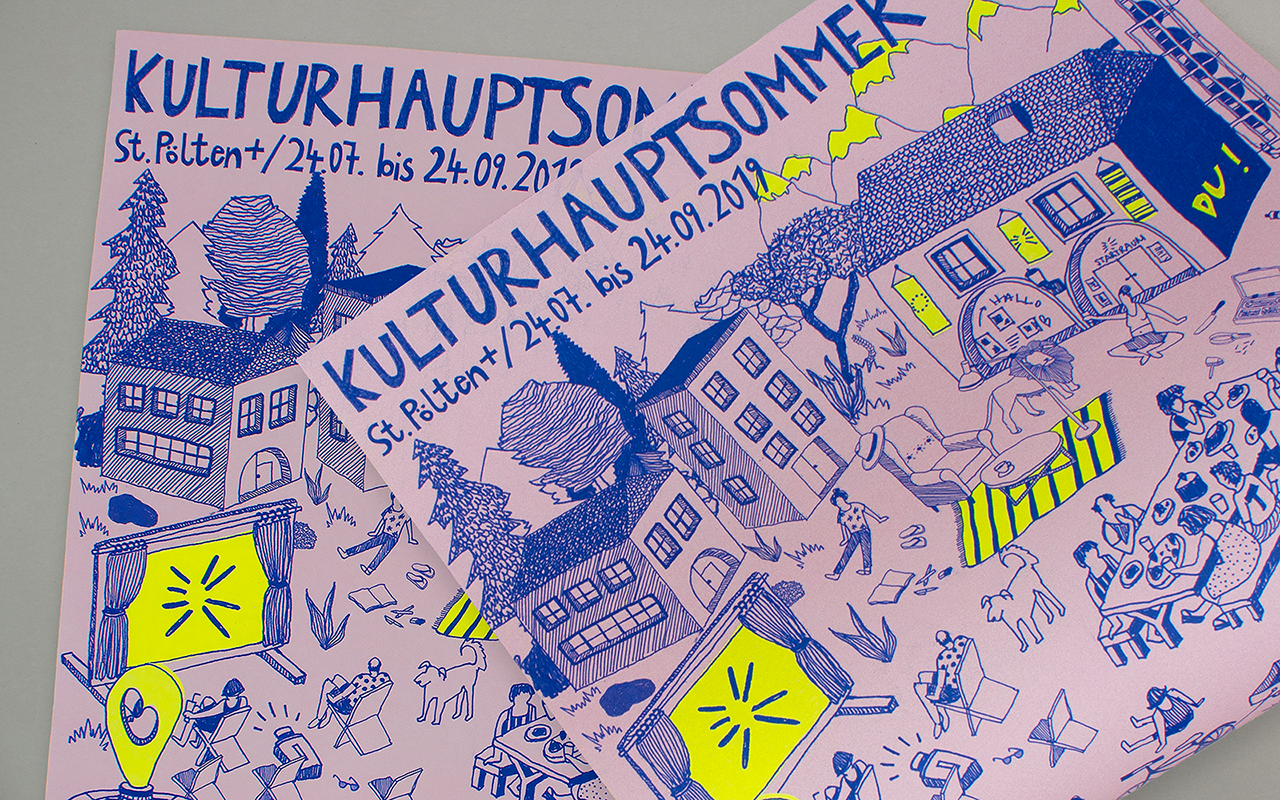 KULTURHAUPTSOM
St. Pölten+/24.07. bis 24.09.2019
KULTURHAUPTSOMMER
St. Pölten+/24.07. bis 24.09.2019
DU!
STARTRAUM
HALLO